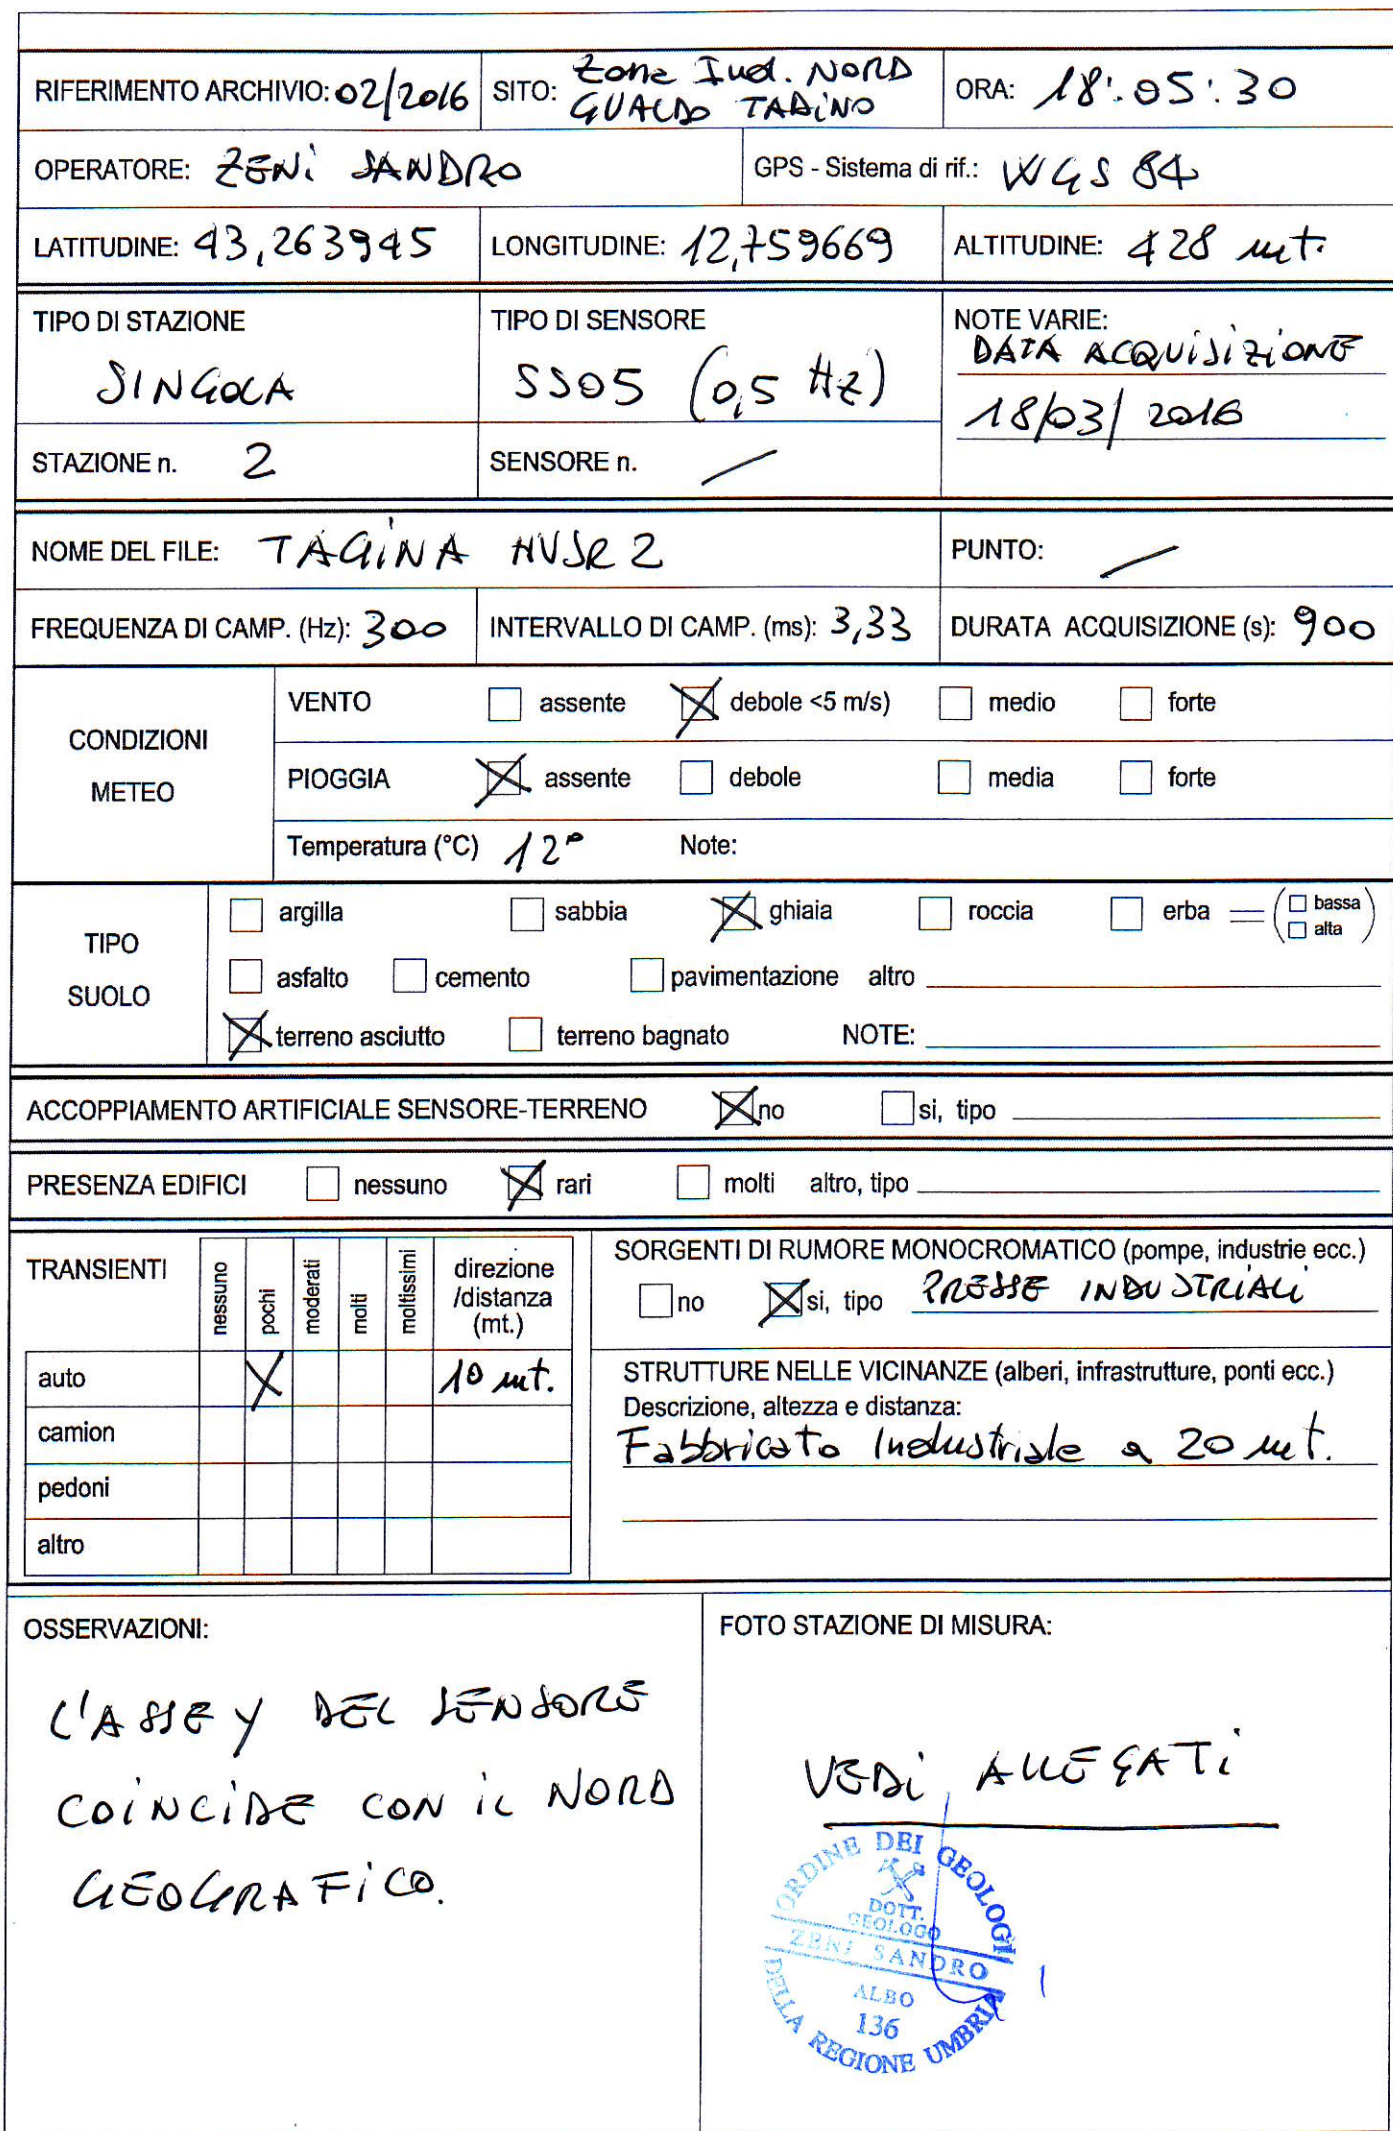 RIFERIMENTO ARCHIVIO: 02/2016 SITO: Zona Ind. NORD GUALDO TADINO ORA: 18:05:30
OPERATORE: ZENI SANDRO GPS - Sistema di rif.: WGS 84
LATITUDINE: 43,263945 LONGITUDINE: 12,759669 ALTITUDINE: 428 mt.
TIPO DI STAZIONE TIPO DI SENSORE NOTE VARIE:
SINGOLA SS05 (0,5 Hz) DATA ACQUISIZIONE
18/03/2016
STAZIONE n. 2 SENSORE n. /
NOME DEL FILE: TAGINA HVSR 2 PUNTO: /
FREQUENZA DI CAMP. (Hz): 300 INTERVALLO DI CAMP. (ms): 3,33 DURATA ACQUISIZIONE (s): 900
CONDIZIONI METEO
VENTO assente debole <5 m/s) medio forte
PIOGGIA assente debole media forte
Temperatura (°C) 12° Note:
TIPO SUOLO
argilla sabbia ghiaia roccia erba = ( bassa alta )
asfalto cemento pavimentazione altro
terreno asciutto terreno bagnato NOTE:
ACCOPPIAMENTO ARTIFICIALE SENSORE-TERRENO no si, tipo
PRESENZA EDIFICI nessuno rari molti altro, tipo
TRANSIENTI nessuno pochi moderati molti moltissimi direzione /distanza (mt.)
auto X 10 mt.
camion
pedoni
altro
SORGENTI DI RUMORE MONOCROMATICO (pompe, industrie ecc.)
no si, tipo PRESSE INDUSTRIALI
STRUTTURE NELLE VICINANZE (alberi, infrastrutture, ponti ecc.)
Descrizione, altezza e distanza:
Fabbricato Industriale a 20 mt.
OSSERVAZIONI:
L'ASSE Y DEL SENSORE
COINCIDE CON IL NORD
GEOGRAFICO.
FOTO STAZIONE DI MISURA:
VEDI ALLEGATI
ORDINE DEI GEOLOGI
DOTT.
GEOLOGO
ZENI SANDRO
ALBO
136
DELLA REGIONE UMBRIA